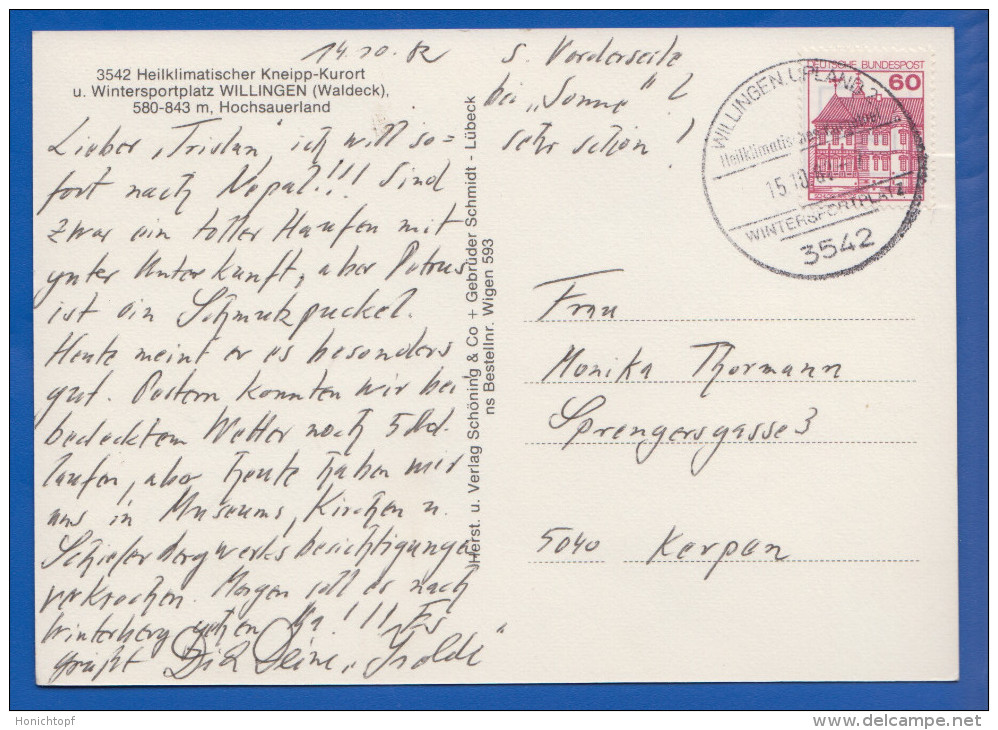 3542 Heilklimatischer Kneipp-Kurort
u. Wintersportplatz WILLINGEN (Waldeck),
580-843 m, Hochsauerland
14.10.82
s. Vorderseite
bei „Sonne"
sehr schön!
Lieber „Tristan", ich will so=
fort nach Nepal!!! Sind
zwar ein toller Haufen mit
guter Unterkunft, aber Petrus
ist ein Schmutzpuckel.
Heute meint er es besonders
gut. Gestern konnten wir bei
bedecktem Wetter noch 5 Std.
laufen, aber heute haben wir
uns in Museums, Kirchen u.
Schieferbergwerksbesichtigungen
verkrochen. Morgen soll es nach
Winterberg gehen. Na!!! Es
grüßt Dich Deine „Isolde"
Herst. u. Verlag Schöning & Co + Gebrüder Schmidt - Lübeck
ns Bestellnr. Wigen 593
DEUTSCHE BUNDESPOST
60
WILLINGEN, UPLAND
Heilklimatischer
15.10.82
WINTERSPORTPLATZ
3542
Frau
Monika Thormann
Sprengersgasse 3
5040 Kerpen
Honichtopf
www.delcampe.net